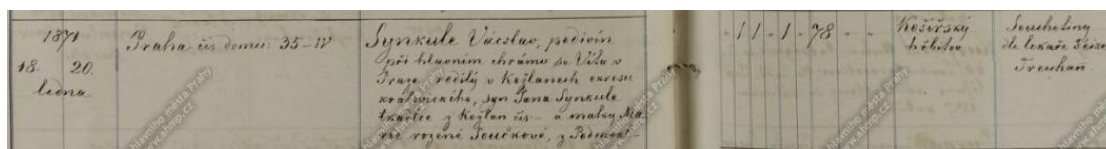 1871
18. 20.
ledna
Praha čís domu: 35-IV
Synkule Vácslav, pedivín
při hlavním chrámu sv. Víta v
Praze, rodilý v Kožlanech okresu
kralovického, syn Jana Synkule
tkadlce z Kožlan čís - a matky Ma
rie rozené Součkové, z Podmokl
11 - 1 - 78 - -
Košířský
hřbitov
Souchotiny
dle lékaře
Treuhan
hlavního města Prahy
www.ahmp.cz